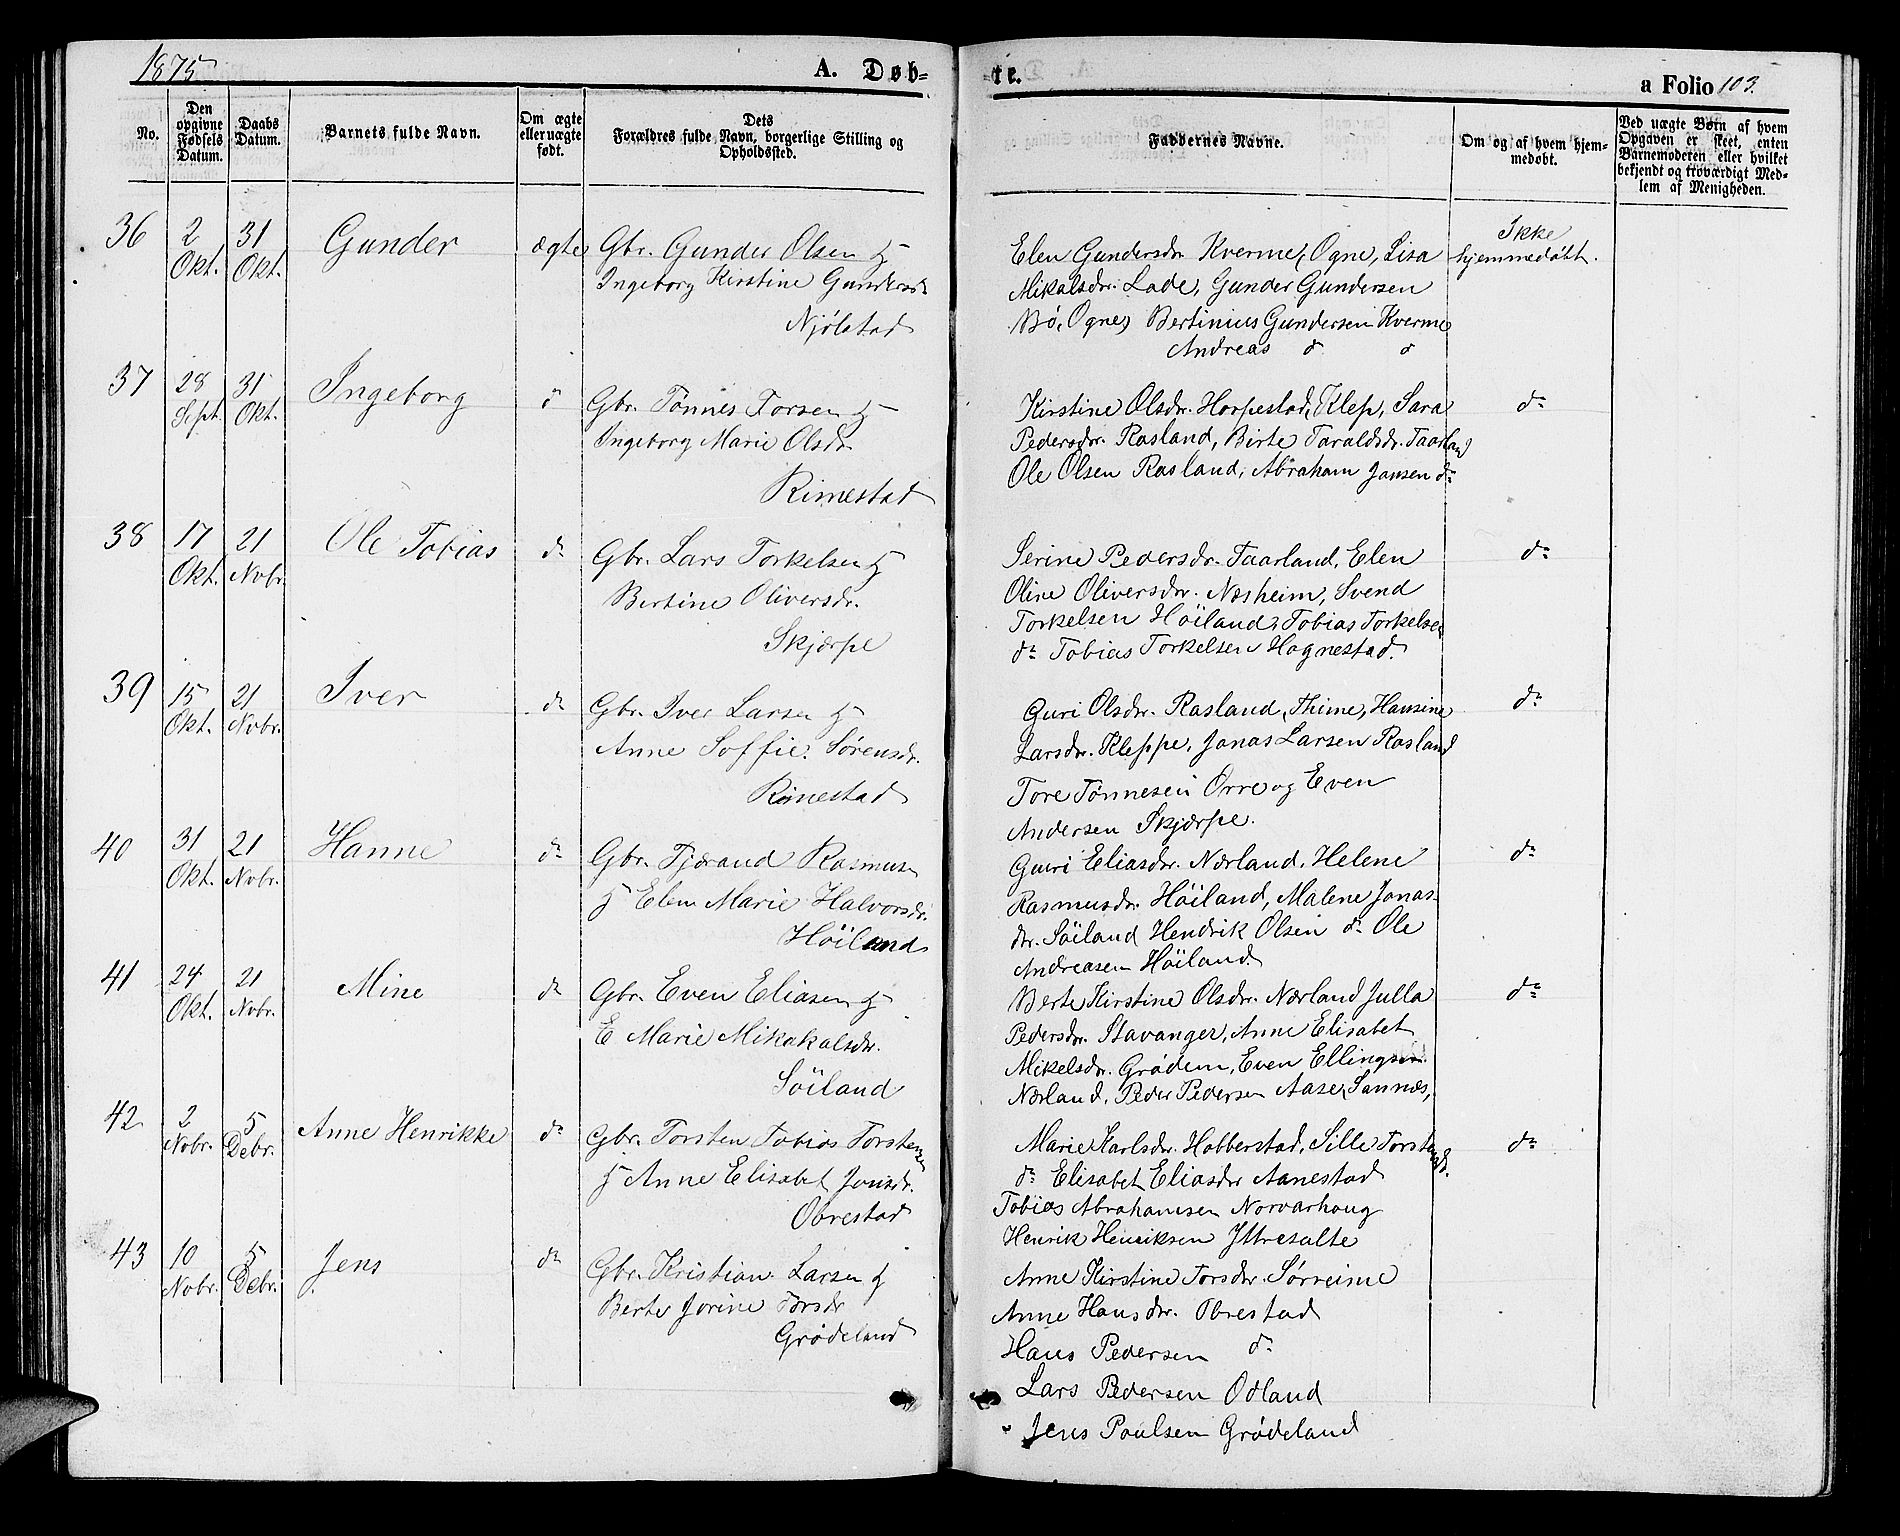 1875
A. Døb-
te.
a Folio 103.
No.
Den opgivne Fødsels Datum.
Daabs Datum.
Barnets fulde Navn.
Om ægte eller uægte født.
Dets Forældres fulde Navn, borgerlige Stilling og Opholdssted.
Faddernes Navne.
Om og af hvem hjem-
medøbt.
Ved uægte Børn af hvem
Opgaven er skeet, enten
Barnemoderen eller hvilket
bekjendt og troværdigt Med-
lem af Menigheden.
36 2 Okt. 31 Okt. Gunder ægte Gbr. Gunder Olsen og
Ingeborg Kirstine Gundersd.
Njølstad
Elen Gundersdr. Kverme, Ogne, Lisa
Mikalsdr. Lode, Gunder Gundersen
Bø, Ogne, Bertinius Gundersen Kverme
Andreas do do
Ikke
hjemmedøbt.
37 28 Sept. 31 Okt. Ingeborg do Gbr. Tønnes Torsen og
Ingeborg Marie Olsdr.
Rimestad
Kirstine Olsdr. Horpestad, Klep, Sara
Pedersdr. Rasland, Birte Taraldsdr. Taarland
Ole Olsen Rasland, Abraham Jansen do
do
38 17 Okt. 21 Nvbr. Ole Tobias do Gbr. Lars Torkelsen og
Bertine Oliversdr.
Skjærpe
Serine Pedersdr. Taarland, Elen
Oline Oliversdr. Næsheim, Svend
Torkelsen Høiland, Tobias Torkelsen
do Tobias Torkelsen Hognestad.
do
39 15 Okt. 21 Nvbr. Iver do Gbr. Iver Larsen og
Anne Soffie Sørensdr.
Rimestad
Guri Olsdr. Rasland, Thime, Hansine
Larsdr. Kleppe, Jonas Larsen Rasland
Tore Tønnesen Orre og Even
Andersen Skjærpe.
do
40 31 Okt. 21 Nvbr. Hanne do Gbr. Tjørand Rasmusn
og Elen Marie Halvorsdr.
Høiland
Guri Eliasdr. Nærland, Helene
Rasmusdr. Høiland, Malene Jonas-
dr. Søiland Hendrik Olsen do Ole
Andreasen Høiland
do
41 24 Okt. 21 Nvbr. Mine do Gbr. Even Eliasen og
E Marie Mikakalsdr.
Søiland
Berte Kirstine Olsdr. Nærland Julla
Pedersdr. Stavanger, Anne Elisabet
Mikelsdr. Grødem, Even Ellingsen
Nærland, Peder Pedersen Aase, Sannæs,
do
42 2 Nobr. 5 Debr. Anne Henrikke do Gbr. Torsten Tobias Torstensen
og Anne Elisabet Jonsdr.
Obrestad
Marie Karlsdr. Hobberstad, Sille Torstensdr.
do Elisabet Eliasdr Aanestad
Tobias Abrahamsen Norvarhoug
Henrik Henriksen Yttresalte
do
43 10 Nobr. 5 Debr. Jens do Gbr. Kristian Larsen og
Berte Jorine Torsdr
Grødeland
Anne Kirstine Torsdr. Sørreime
Anne Hansdr. Obrestad
Hans Pedersen do
Lars Pedersen Odland
Jens Poulsen Grødeland